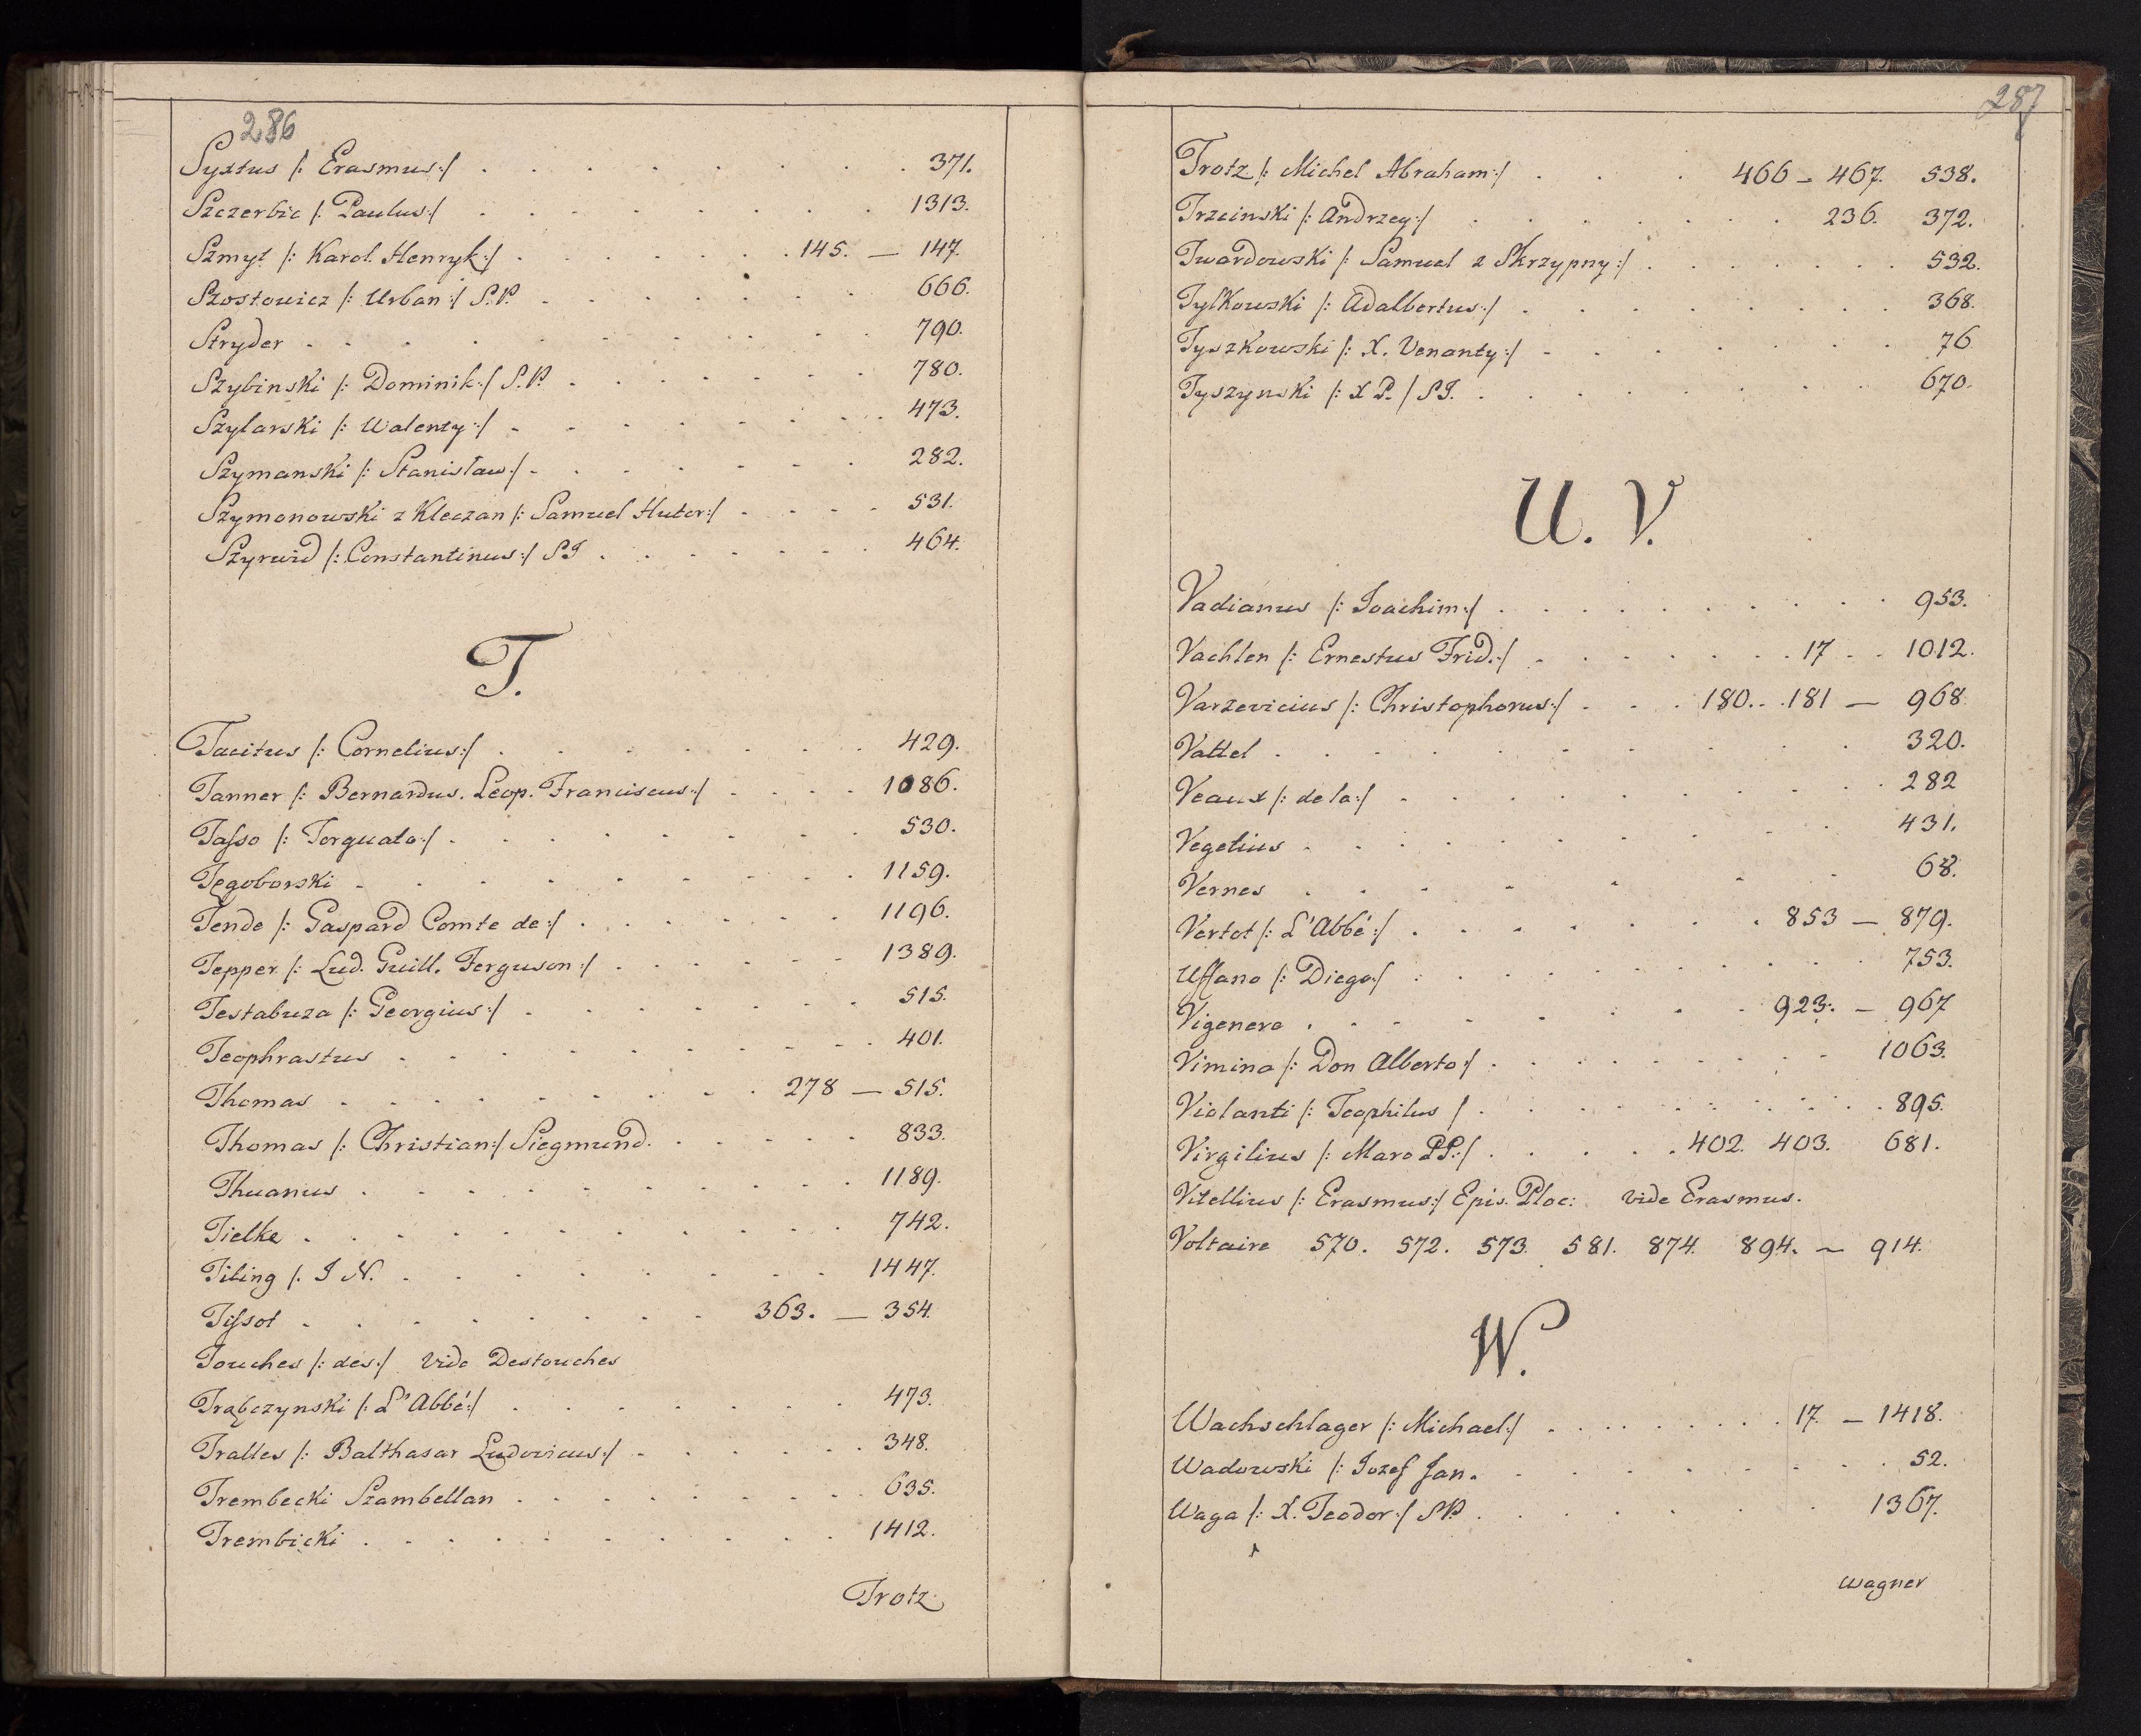 286
Syxtus /: Erasmus:/ . . . . . . . . . 371.
Szczerbic /: Paulus:/ . . . . . . . . 1313.
Szmyt /: Karol Henryk:/ . . . . . . 145. — 147.
Szostowicz /: Urban:/ S.P. . . . . . . . 666.
Stryder . . . . . . . . . . 790.
Szybinski /: Dominik:/ S.P. . . . . . . 780.
Szylarski /: Walenty:/ . . . . . . . . 473.
Szymanski /: Stanisław:/ . . . . . . . 282.
Szymonowski z Kleczan /: Samuel Hutor:/ . . . . 531.
Szyrwid /: Constantinus:/ SJ . . . . . . . 464.
T.
Tacitus /: Cornelius:/ . . . . . . . . 429.
Tanner /: Bernardus. Leop. Franciscus:/ . . . . 1086.
Tasso /: Torquato:/ . . . . . . . . 530.
Tęgoborski . . . . . . . . . 1159.
Tende /: Gaspard Comte de:/ . . . . . . . 1196.
Tepper /: Lud. Guill. Ferguson:/ . . . . . . 1389.
Testabuza /: Georgius:/ . . . . . . . 515.
Teophrastus . . . . . . . . . . 401.
Thomas . . . . . . . . . 278 — 515.
Thomas /: Christian:/ Siegmund. . . . . . 833.
Thuanus . . . . . . . . . . 1189.
Tielke . . . . . . . . . . 742.
Tiling /. J N. . . . . . . . . . 1447.
Tissot . . . . . . . . . 363. — 354.
Touches /: des:/ vide Destouches
Trąbczynski /: L'Abbé:/ . . . . . . . 473.
Tralles /: Balthasar Ludovicus:/ . . . . . . 348.
Trembecki Szambellan . . . . . . . . 635.
Trembicki . . . . . . . . . . 1412.
Trotz
287
Trotz /: Michel Abraham:/ . . . . 466 - 467. 538.
Trzcinski /: Andrzey:/ . . . . . . . 236. 372.
Twardowski /: Samuel z Skrzypny:/ . . . . . . 532.
Tylkowski /: Adalbertus:/ . . . . . . . . 368.
Tyszkowski /: X. Venanty:/ . . . . . . . 76
Tyszynski /: X P. / SJ. . . . . . . . 670.
U. V.
Vadianus /: Joachim:/ . . . . . . . . . 953.
Vachlen /: Ernestus Frid.:/ . . . . . . . 17 . . 1012.
Varzevicius /: Christophorus:/ . . . 180. . . 181 — 968
Vattel . . . . . . . . . . 320.
Veaux /: de la:/ . . . . . . . . . 282
Vegetius . . . . . . . . . 431.
Vernes . . . . . . . . 68.
Vertot /: L'Abbé:/ . . . . . . . . 853 — 879.
Uffano /: Diego:/ . . . . . . . . . 753.
Vigenere . . . . . . . . 923. — 967
Vimina /: Don Alberto:/ . . . . . . . . 1063.
Violanti /: Teophilus / . . . . . . . . . 895.
Virgilius /: Maro PP:/ . . . . . . 402. 403. 681.
Vitellius /: Erasmus:/ Epis. Ploc: vide Erasmus.
Voltaire 570. 572. 573. 581. 874. 894. — 914.
W.
Wachschlager /: Michael:/ . . . . . . . . 17. — 1418.
Wadowski /: Jozef Jan. . . . . . . . . . 52.
Waga /: X. Teodor:/ SP. . . . . . . . 1367.
Wagner